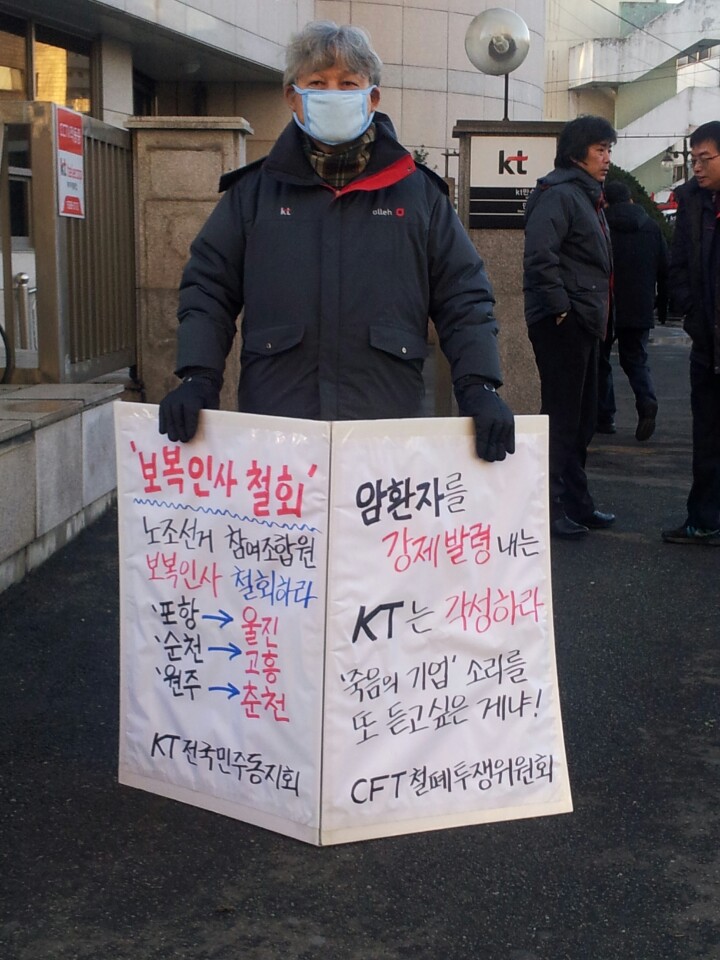 kt
kt
olleh
kt
'보복인사 철회'
노조선거 참여조합원
보복인사 철회하라
'포항→울진
'순천→고흥
'원주→춘천
KT전국민주동지회
암환자를
강제발령 내는
KT는 각성하라
'죽음의 기업' 소리를
또 듣고싶은 게냐!
CFT철폐투쟁위원회